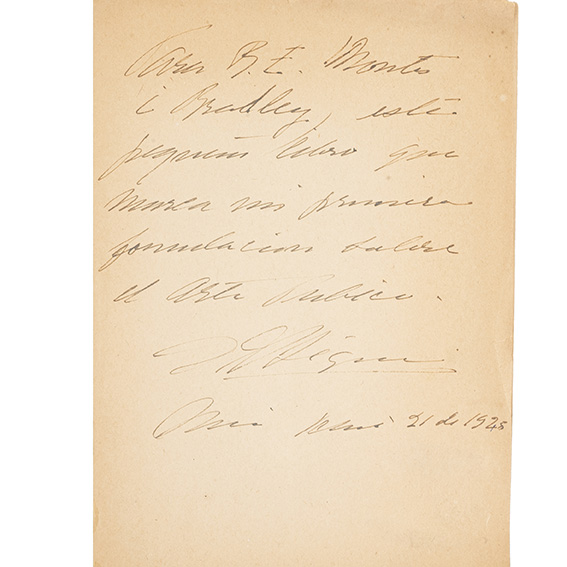 Para R. E. Montes
i Bradley, este
pequeño libro que
marca mi primera
formulacion sobre
el Arte Publico.
21 de 192